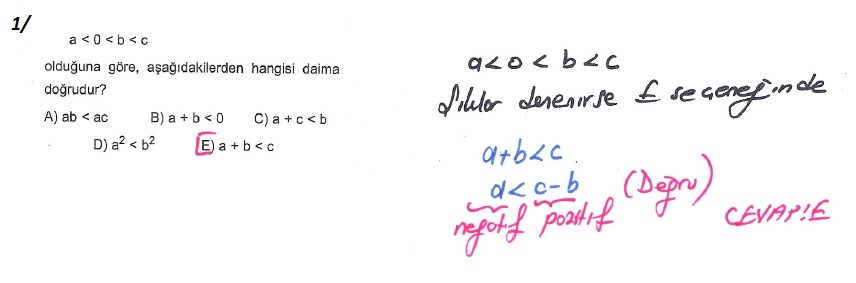 1/
a < 0 < b < c
olduğuna göre, aşağıdakilerden hangisi daima
doğrudur?
A) ab < ac B) a + b < 0 C) a + c < b
D) a² < b² E) a + b < c
a < 0 < b < c
Şıklar denenirse E seçeneğinde
a+b < c
a < c-b (Doğru)
negatif pozitif
CEVAP:E